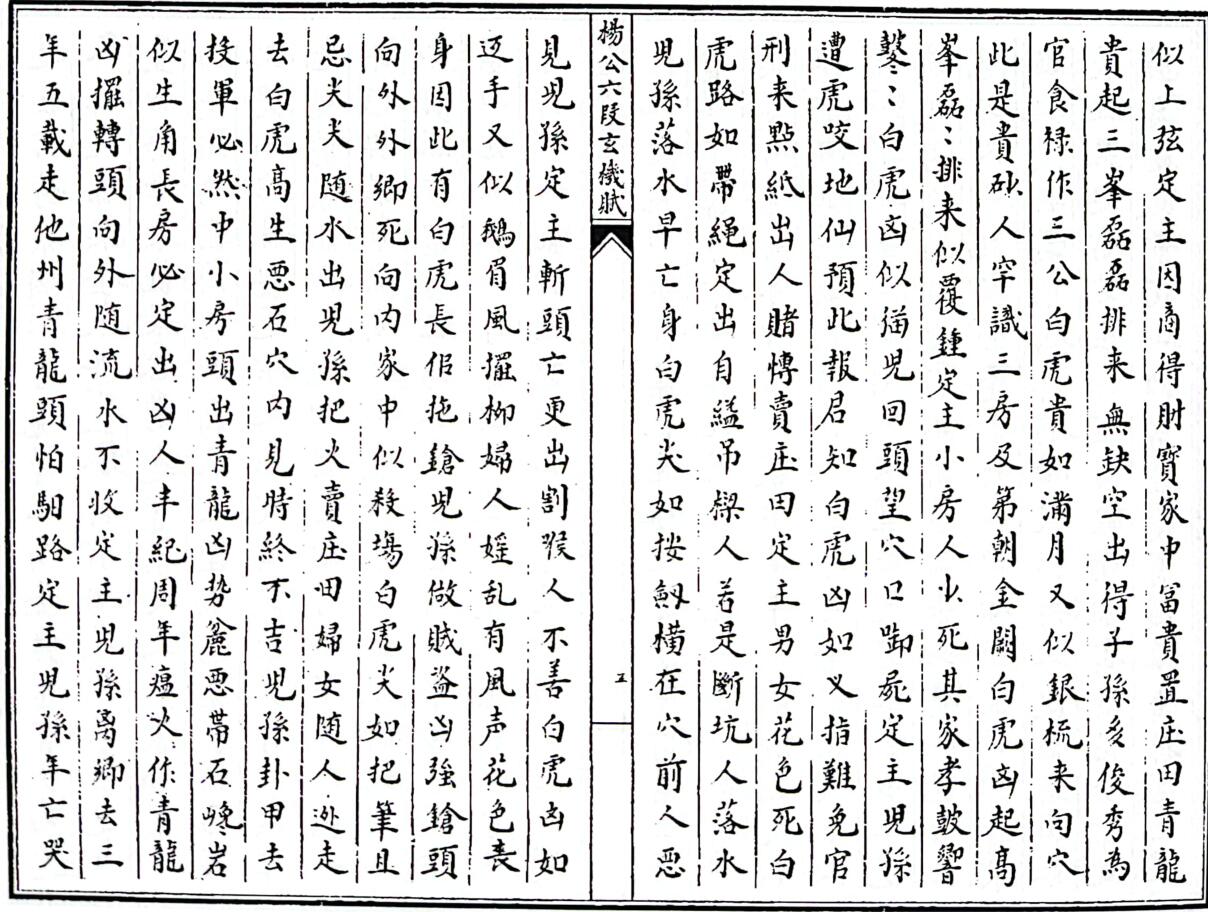 似上弦定主因商得財寶家中冨貴置庄田青龍
貴起三峯磊磊排来無缺空出得子孫多俊秀為
官食禄作三公白虎貴如滿月又似銀梳来向穴
此是貴砂人罕識三房及第朝金闕白虎凶起高
峯磊〻排来似覆鍾定主小房人少死其家孝皷響
鼕〻白虎凶似猫兒回頭望穴口啣屍定主兒孫
遭虎咬地仙預此報君知白虎凶如义指難免官
刑来點紙出人賭愽賣庄田定主男女花色死白
虎路如帶繩定出自縊吊樑人若是斷坑人落水
兒孫落水早亡身白虎尖如按劔橫在穴前人恶
楊公六段玄機賦
五
見兒孫定主斬頭亡更出割喉人不善白虎凶如
迓手又似鵝眉風擺柳婦人婬乱有風声花色丧
身因此有白虎長似拖鎗兒孫做賊盗凶強鎗頭
向外外卿死向内家中似殺塲白虎尖如把筆且
忌尖尖随水出兒孫把火賣庄田婦女随人迯走
去白虎高生恶石穴内見時終不吉兒孫卦甲去
投軍必然中小房頭出青龍凶势麄恶帶石巉岩
似生角長房必定出凶人半紀周年瘟火作青龍
凶擺轉頭向外随流水不收定主兒孫离卿去三
年五載走他州青龍頭怕馹路定主兒孫年亡哭